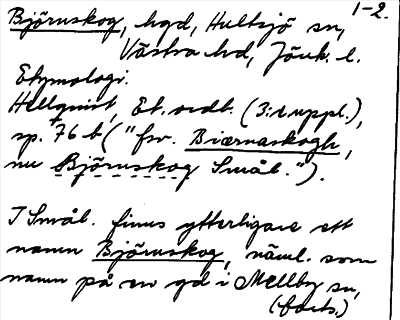 1-2.
Björnskog, hgd, Hultsjö sn,
Västra hd, Jönk. l.
Etymologi.
Hellquist, Et. ordb. (3:e uppl.),
sp. 76 b ("fsv. Biærnaskogh,
nu Björnskog Smål.").
I Smål. finns ytterligare ett
namn Björnskog, näml. som
namn på en gd i Mellby sn,
(forts.)